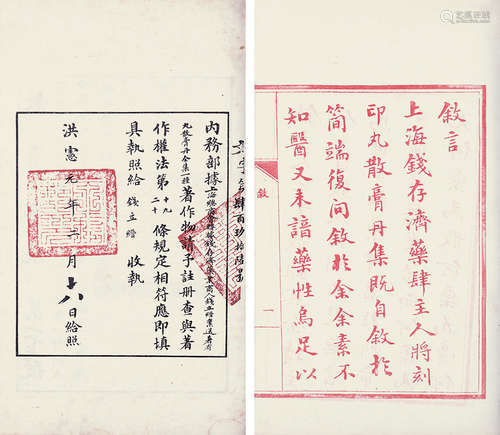 敘言
上海錢存濟藥肆主人將刻
印丸散膏丹集既自敘於
簡端復問敘於余余素不
知醫又未諳藥性烏足以
敘
一
內務部據上海總商會轉錢存濟藥業商人錢立縉業送壽世
丸散膏丹全集一種著作物請予註冊查與著
作權法第二十九條規定相符應即填
具執照給錢立縉收執
洪憲元年二月十八日給照